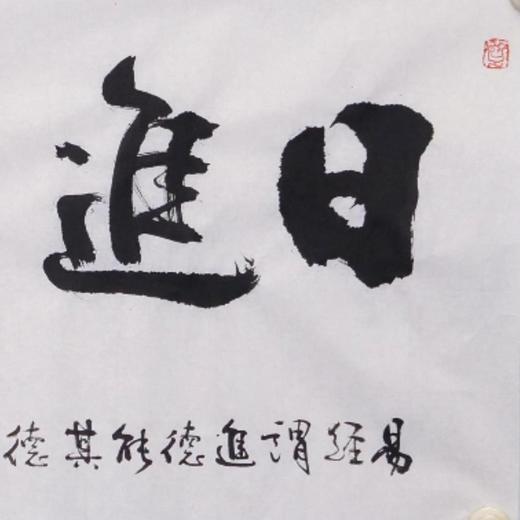 日進
易經謂進德能其德